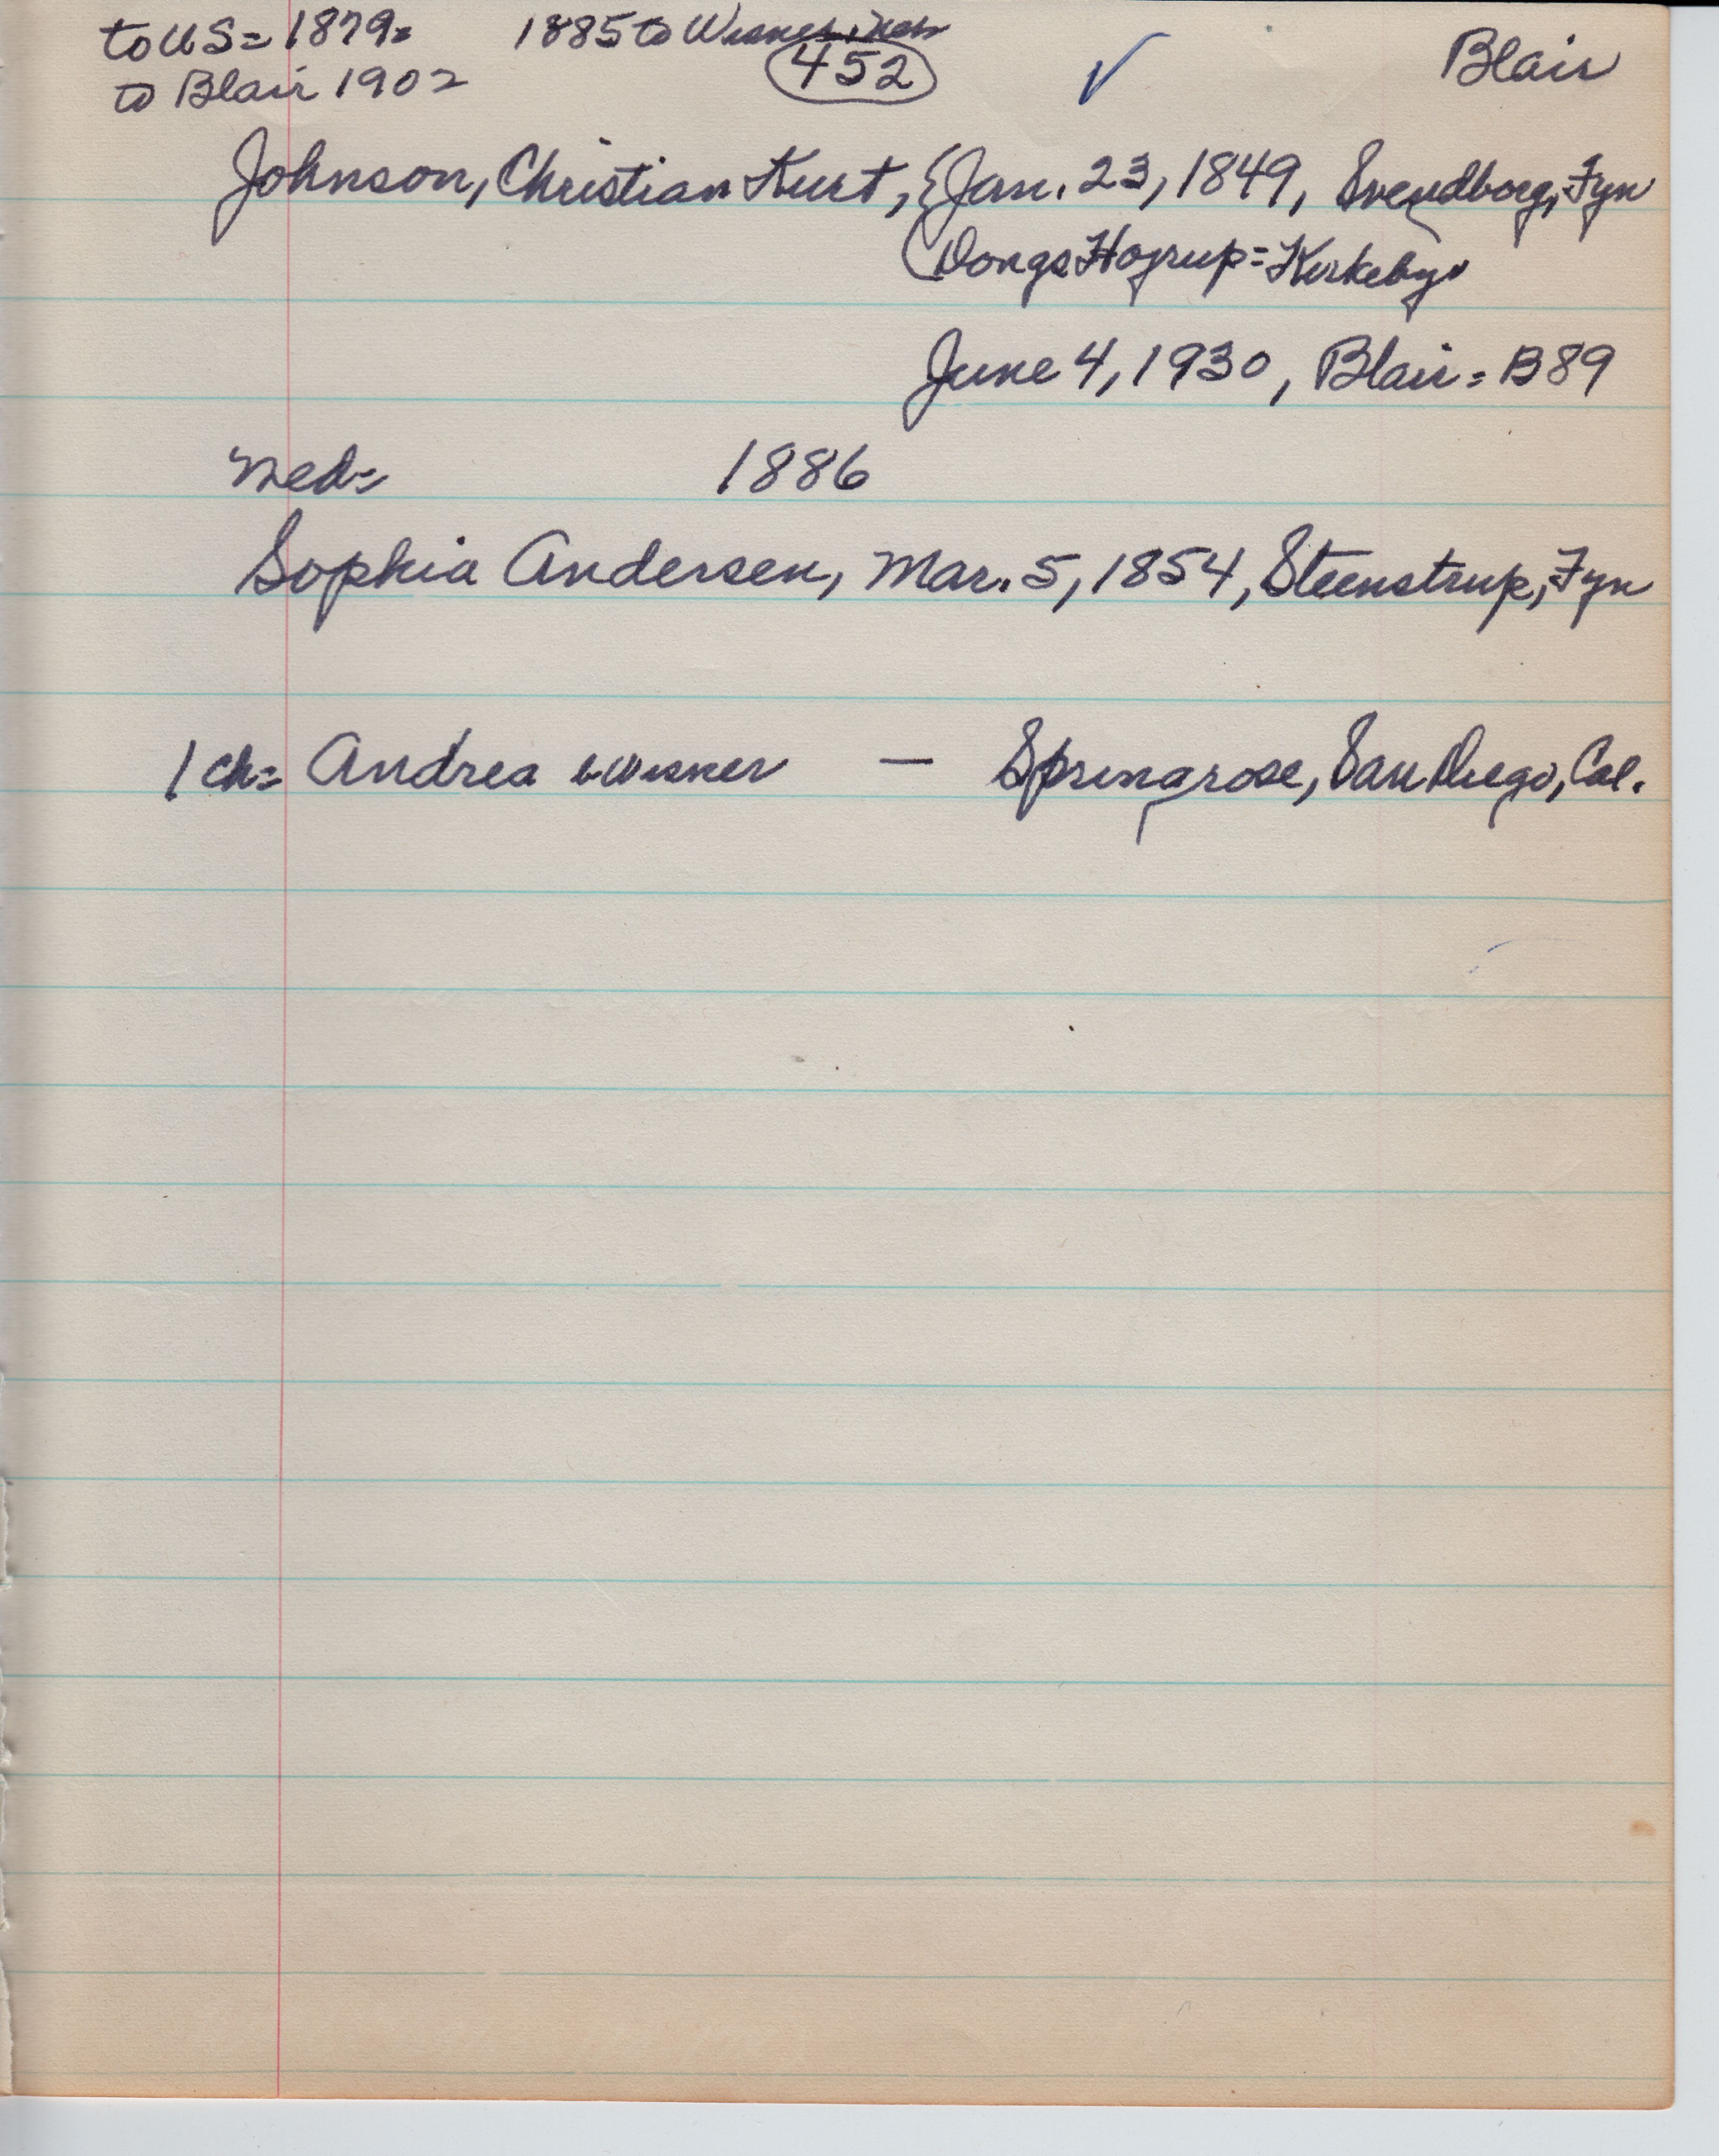 to US = 1879 = 1885 to Wisner, Neb
to Blair 1902 452 ✓ Blair
Johnson, Christian Kurt, {Jan. 23, 1849, Svendborg, Fyn
Dongs Hojrup = Kirkeby
June 4, 1930, Blair = B89
med = 1886
Sophia Andersen, Mar. 5, 1854, Steenstrup, Fyn
1 ch = Andrea b Wisner — Springrose, San Diego, Cal.